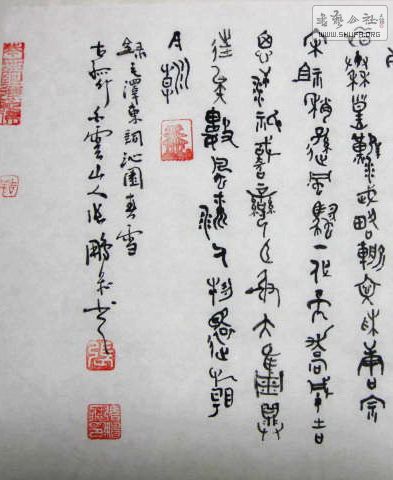 书艺公社
WWW.SHUFA.ORG
惜秦皇漢武略輸文采唐宗
宋祖稍遜風騷一代天驕成吉
思汗祇識彎弓射大雕俱
往矣數風流人物還看
今朝
錄毛澤東詞沁園春雪
雲山人張鵬書